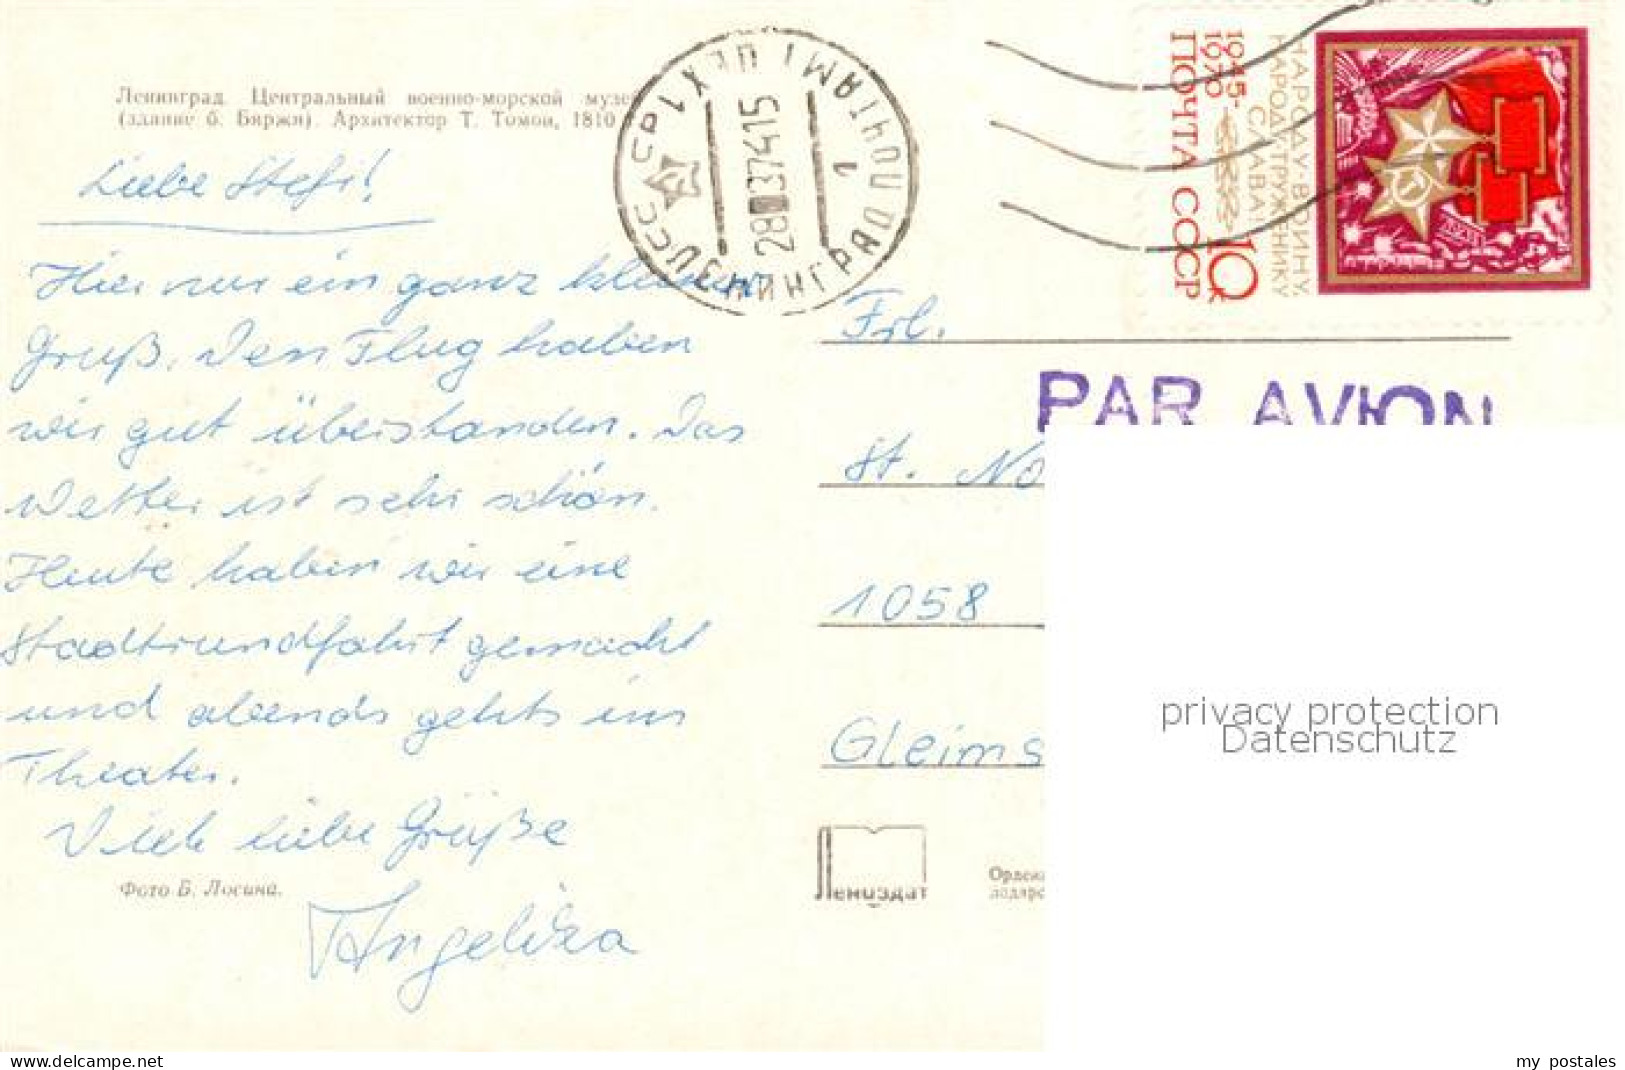 Ленинград. Центральный военно-морской музе
(здание б. Биржи). Архитектор Т. Томон, 1810
Liebe Stefi!
Hier nur ein ganz kleiner
Gruß. Den Flug haben
wir gut überstanden. Das
Wetter ist sehr schön.
Heute haben wir eine
Stadtrundfahrt gemacht
und abends gehts ins
Theater.
Viele liebe Grüße
Angelika
Фото Б. Лосина.
СССР
ЛЕНИНГРАД ПОЧТАМТ
1
28 0374 15
1945-
1970
ПОЧТА СССР
НАРОДУ-ВОИНУ,
НАРОДУ ТРУЖЕНИКУ
СЛАВА!
10 к
PAR AVION
Frl.
St. No
1058
Gleims
Лениздат
Ордена
privacy protection
Datenschutz
my postales